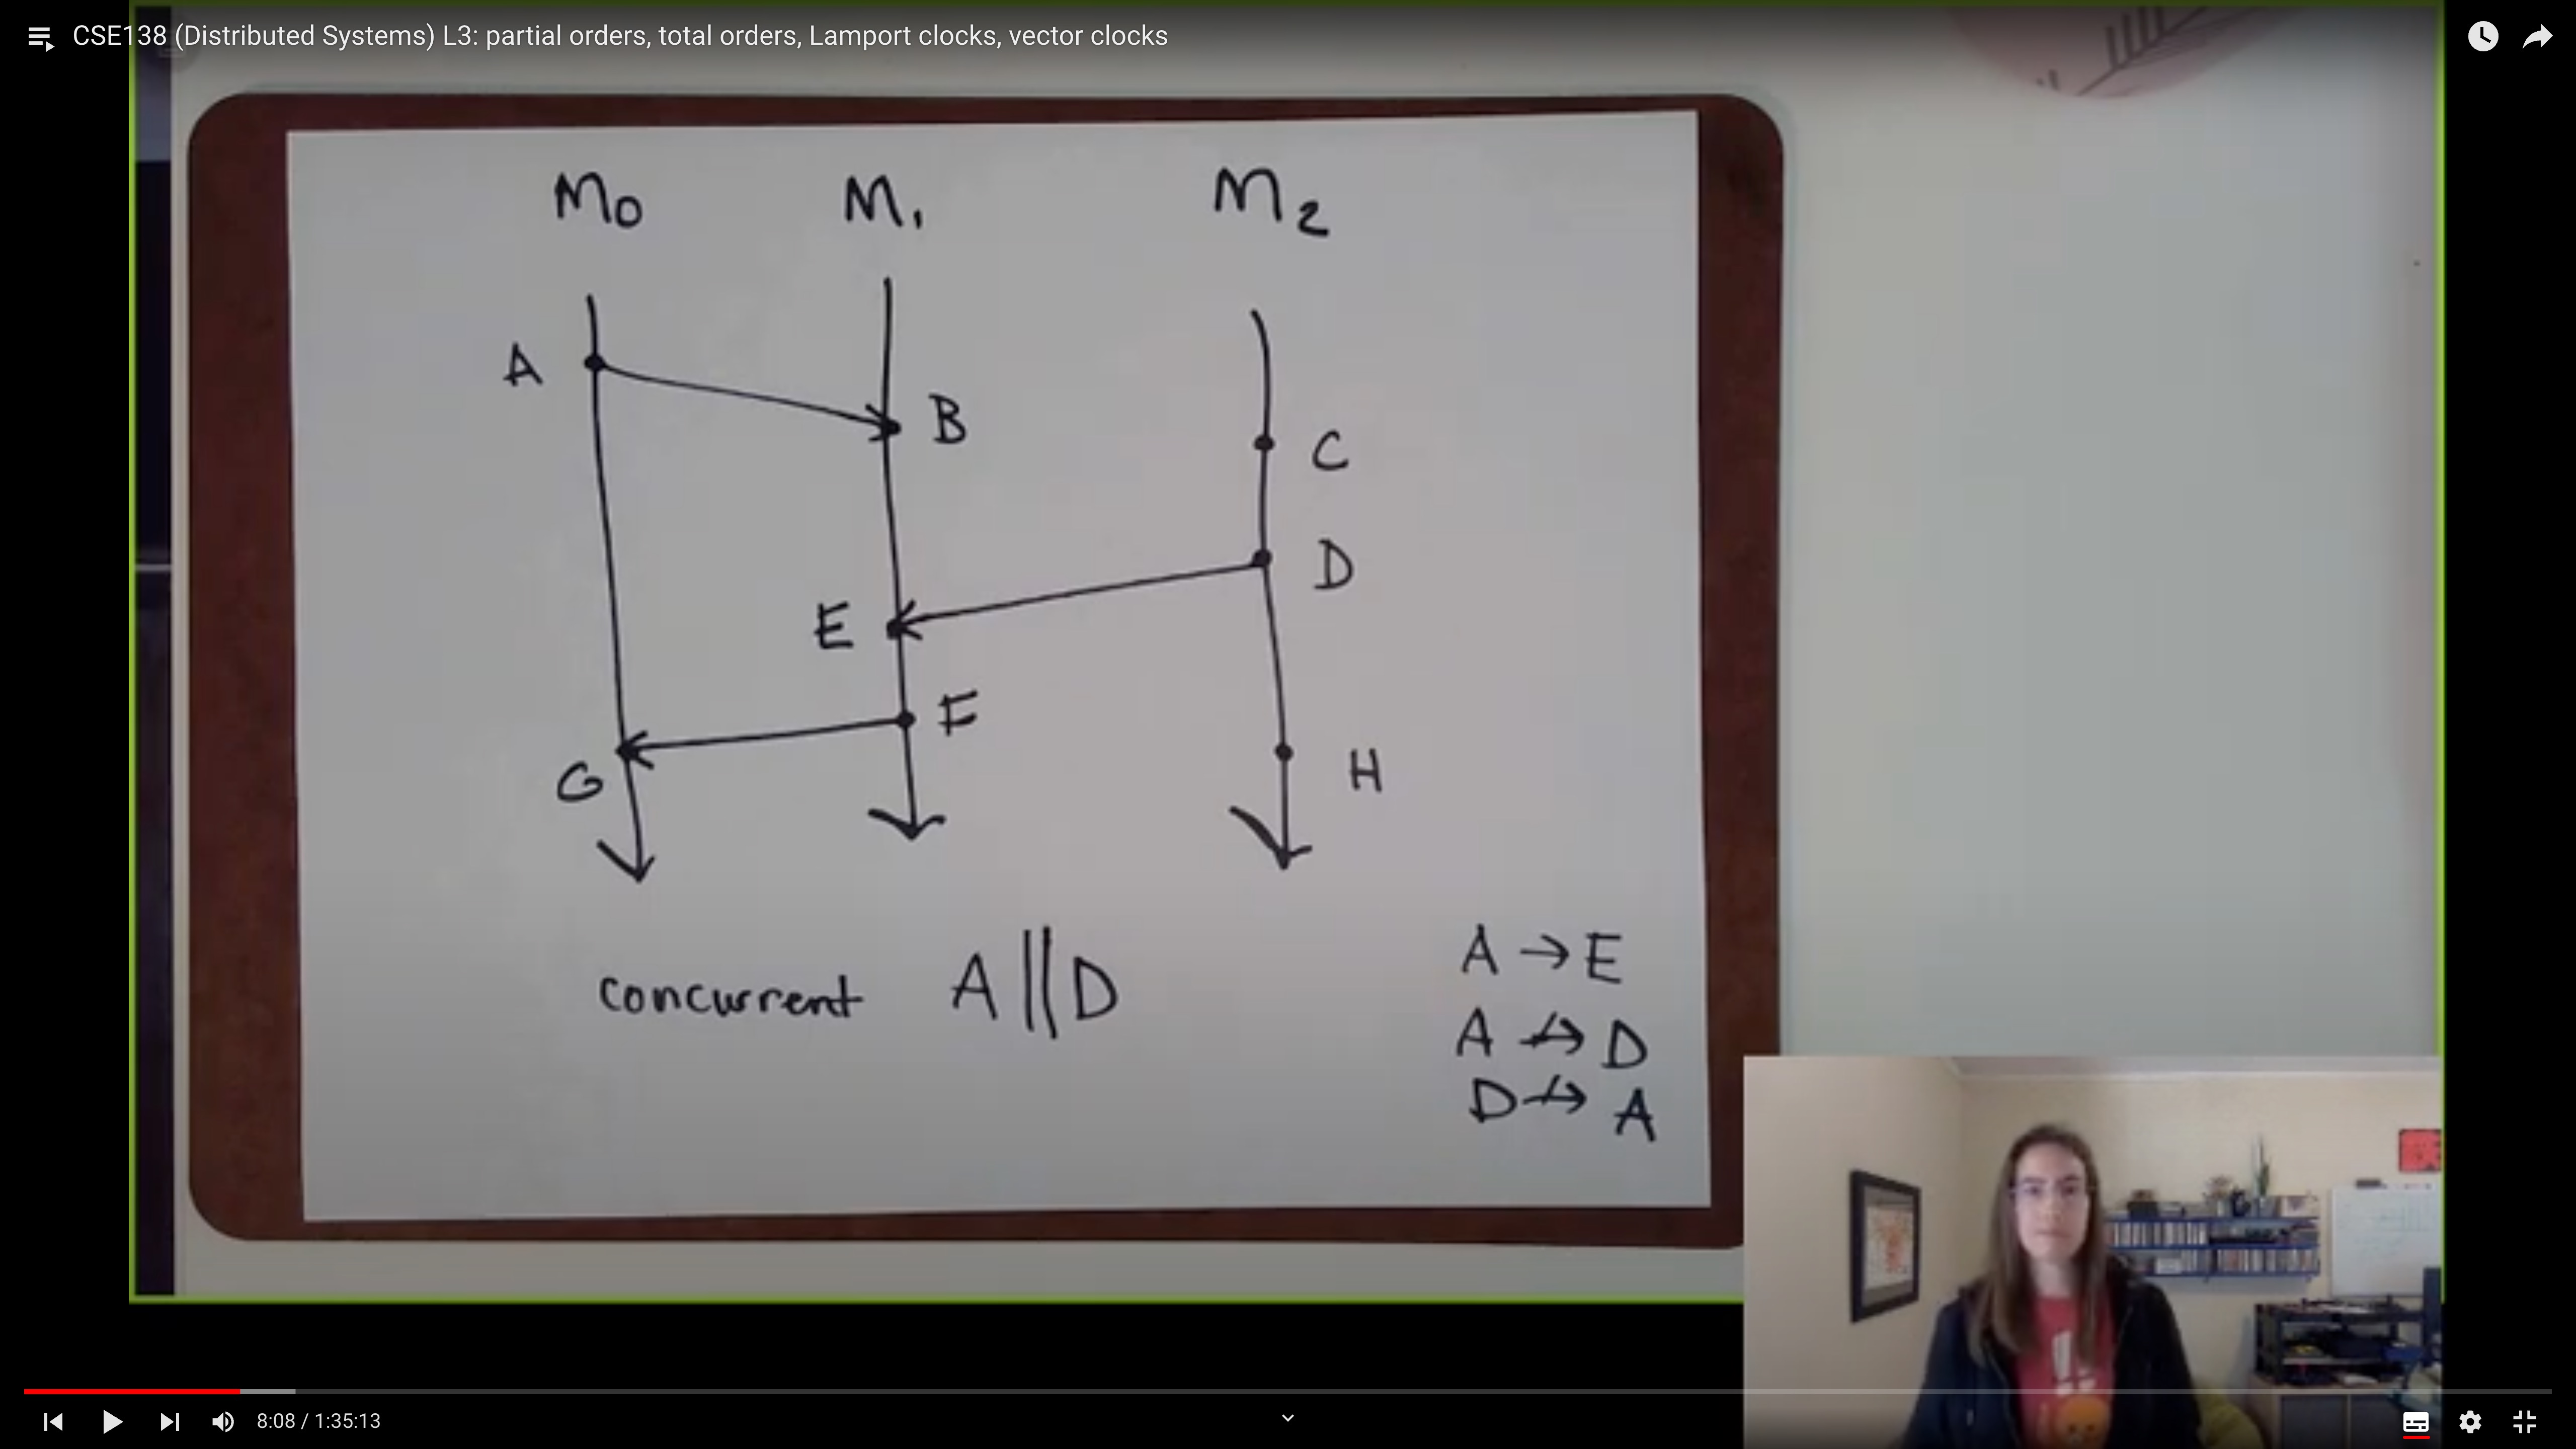 CSE138 (Distributed Systems) L3: partial orders, total orders, Lamport clocks, vector clocks
M0 M1 M2
A
B
C
D
E
F
G
H
concurrent A || D
A → E
A ↛ D
D ↛ A
8:08 / 1:35:13